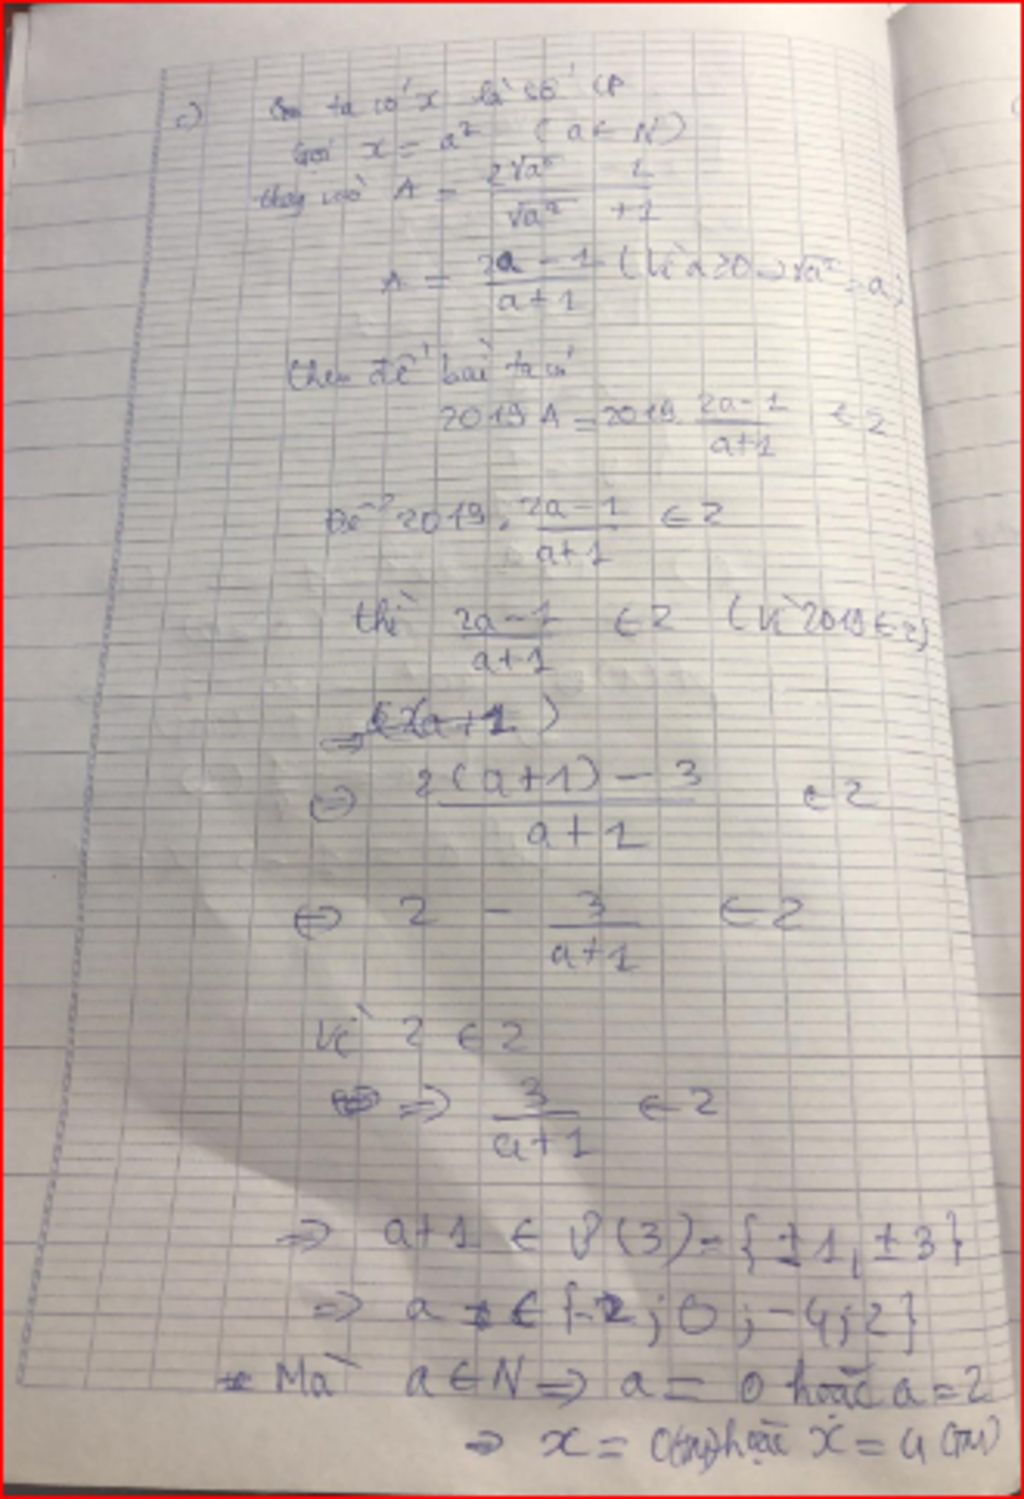 c) ta có x là số CP
Gọi x = a² (a ∈ N)
thay vào A = 2√a² - 1 / √a² + 1
A = 2a - 1 / a + 1 (Vì a ≥ 0 => √a² = a)
theo đề bài ta có
2019 A = 2019. 2a - 1 / a + 1 ∈ Z
Để 2019. 2a - 1 / a + 1 ∈ Z
thì 2a - 1 / a + 1 ∈ Z (Vì 2019 ∈ Z)
<=> 2(a+1) - 3 / a + 1 ∈ Z
<=> 2 - 3 / a + 1 ∈ Z
Vì 2 ∈ Z
=> 3 / a + 1 ∈ Z
=> a+1 ∈ Ư(3) = {±1, ±3}
=> a ∈ {-2; 0; -4; 2}
Mà a ∈ N => a = 0 hoặc a = 2
=> x = 0(tm) hoặc x = 4 (TM)